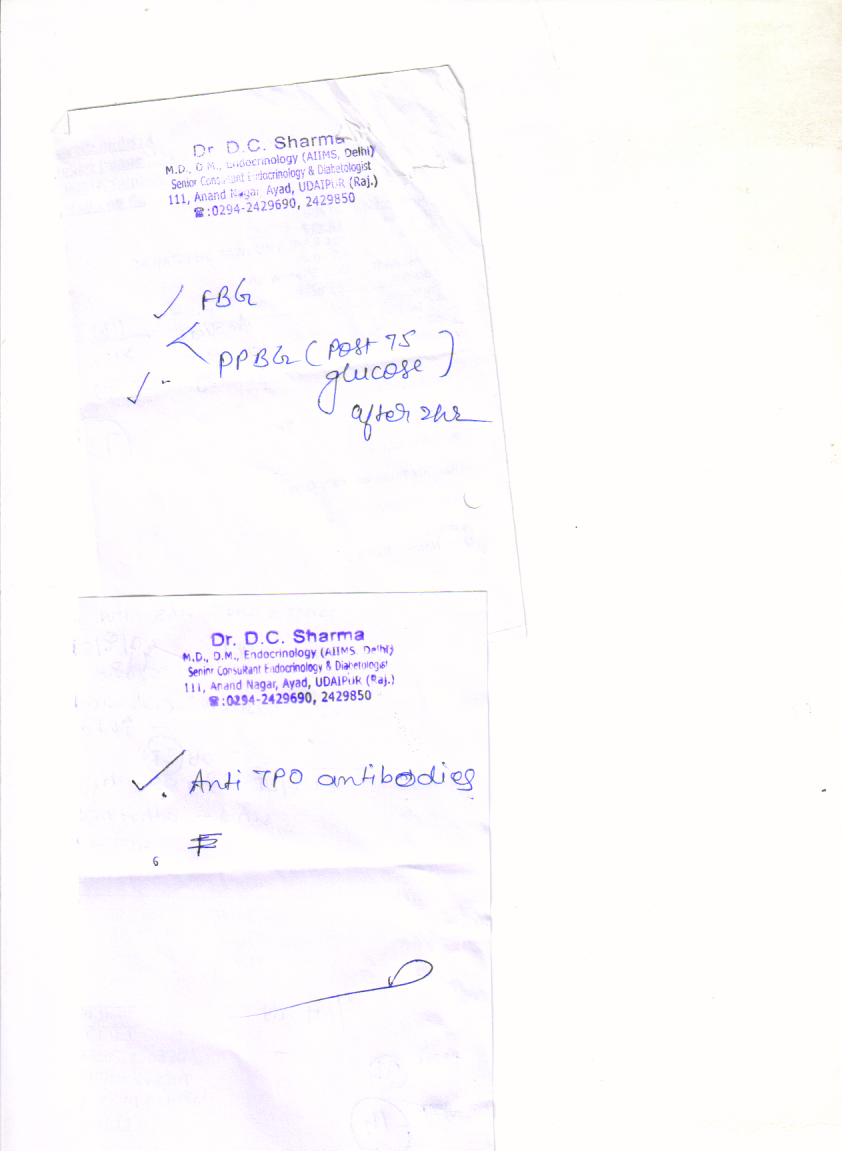 Dr D.C. Sharma
M.D., D.M., Endocrinology (AIIMS, Delhi)
Senior Consultant Endocrinology & Diabetologist
111, Anand Nagar, Ayad, UDAIPUR (Raj.)
☎:0294-2429690, 2429850
✓ FBG
PPBG (Post 75
glucose)
✓
after 2hr
Dr. D.C. Sharma
M.D., D.M., Endocrinology (AIIMS, Delhi)
Senior Consultant Endocrinology & Diabetologist
111, Anand Nagar, Ayad, UDAIPUR (Raj.)
☎:0294-2429690, 2429850
✓. Anti TPO antibodies